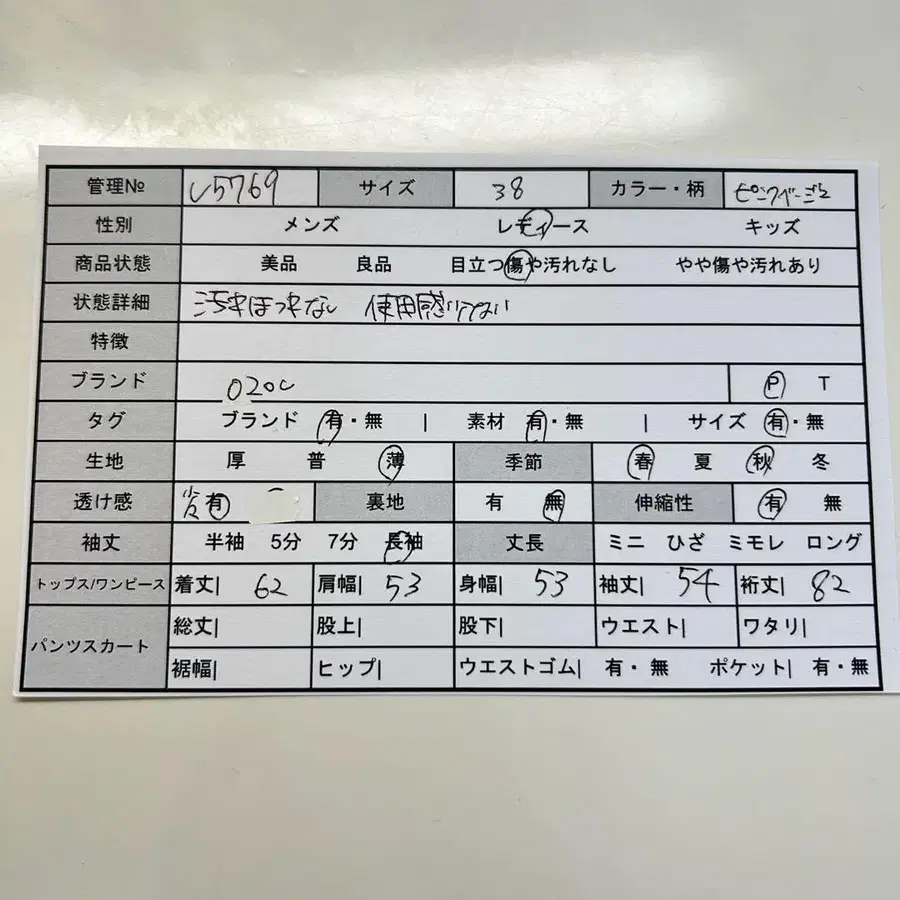 管理№ し5769 サイズ 38 カラー・柄 ピンクベージュ
性別 メンズ レディース キッズ
商品状態 美品 良品 目立つ傷や汚れなし やや傷や汚れあり
状態詳細 汚れほつれなし 使用感少ない
特徴
ブランド 020c P T
タグ ブランド 有・無 | 素材 有・無 | サイズ 有・無
生地 厚 普 薄 季節 春 夏 秋 冬
透け感 少々有 裏地 有 無 伸縮性 有 無
袖丈 半袖 5分 7分 長袖 丈長 ミニ ひざ ミモレ ロング
トップス/ワンピース 着丈| 62 肩幅| 53 身幅| 53 袖丈| 54 裄丈| 82
パンツスカート 総丈| 股上| 股下| ウエスト| ワタリ|
裾幅| ヒップ| ウエストゴム| 有・無 ポケット| 有・無